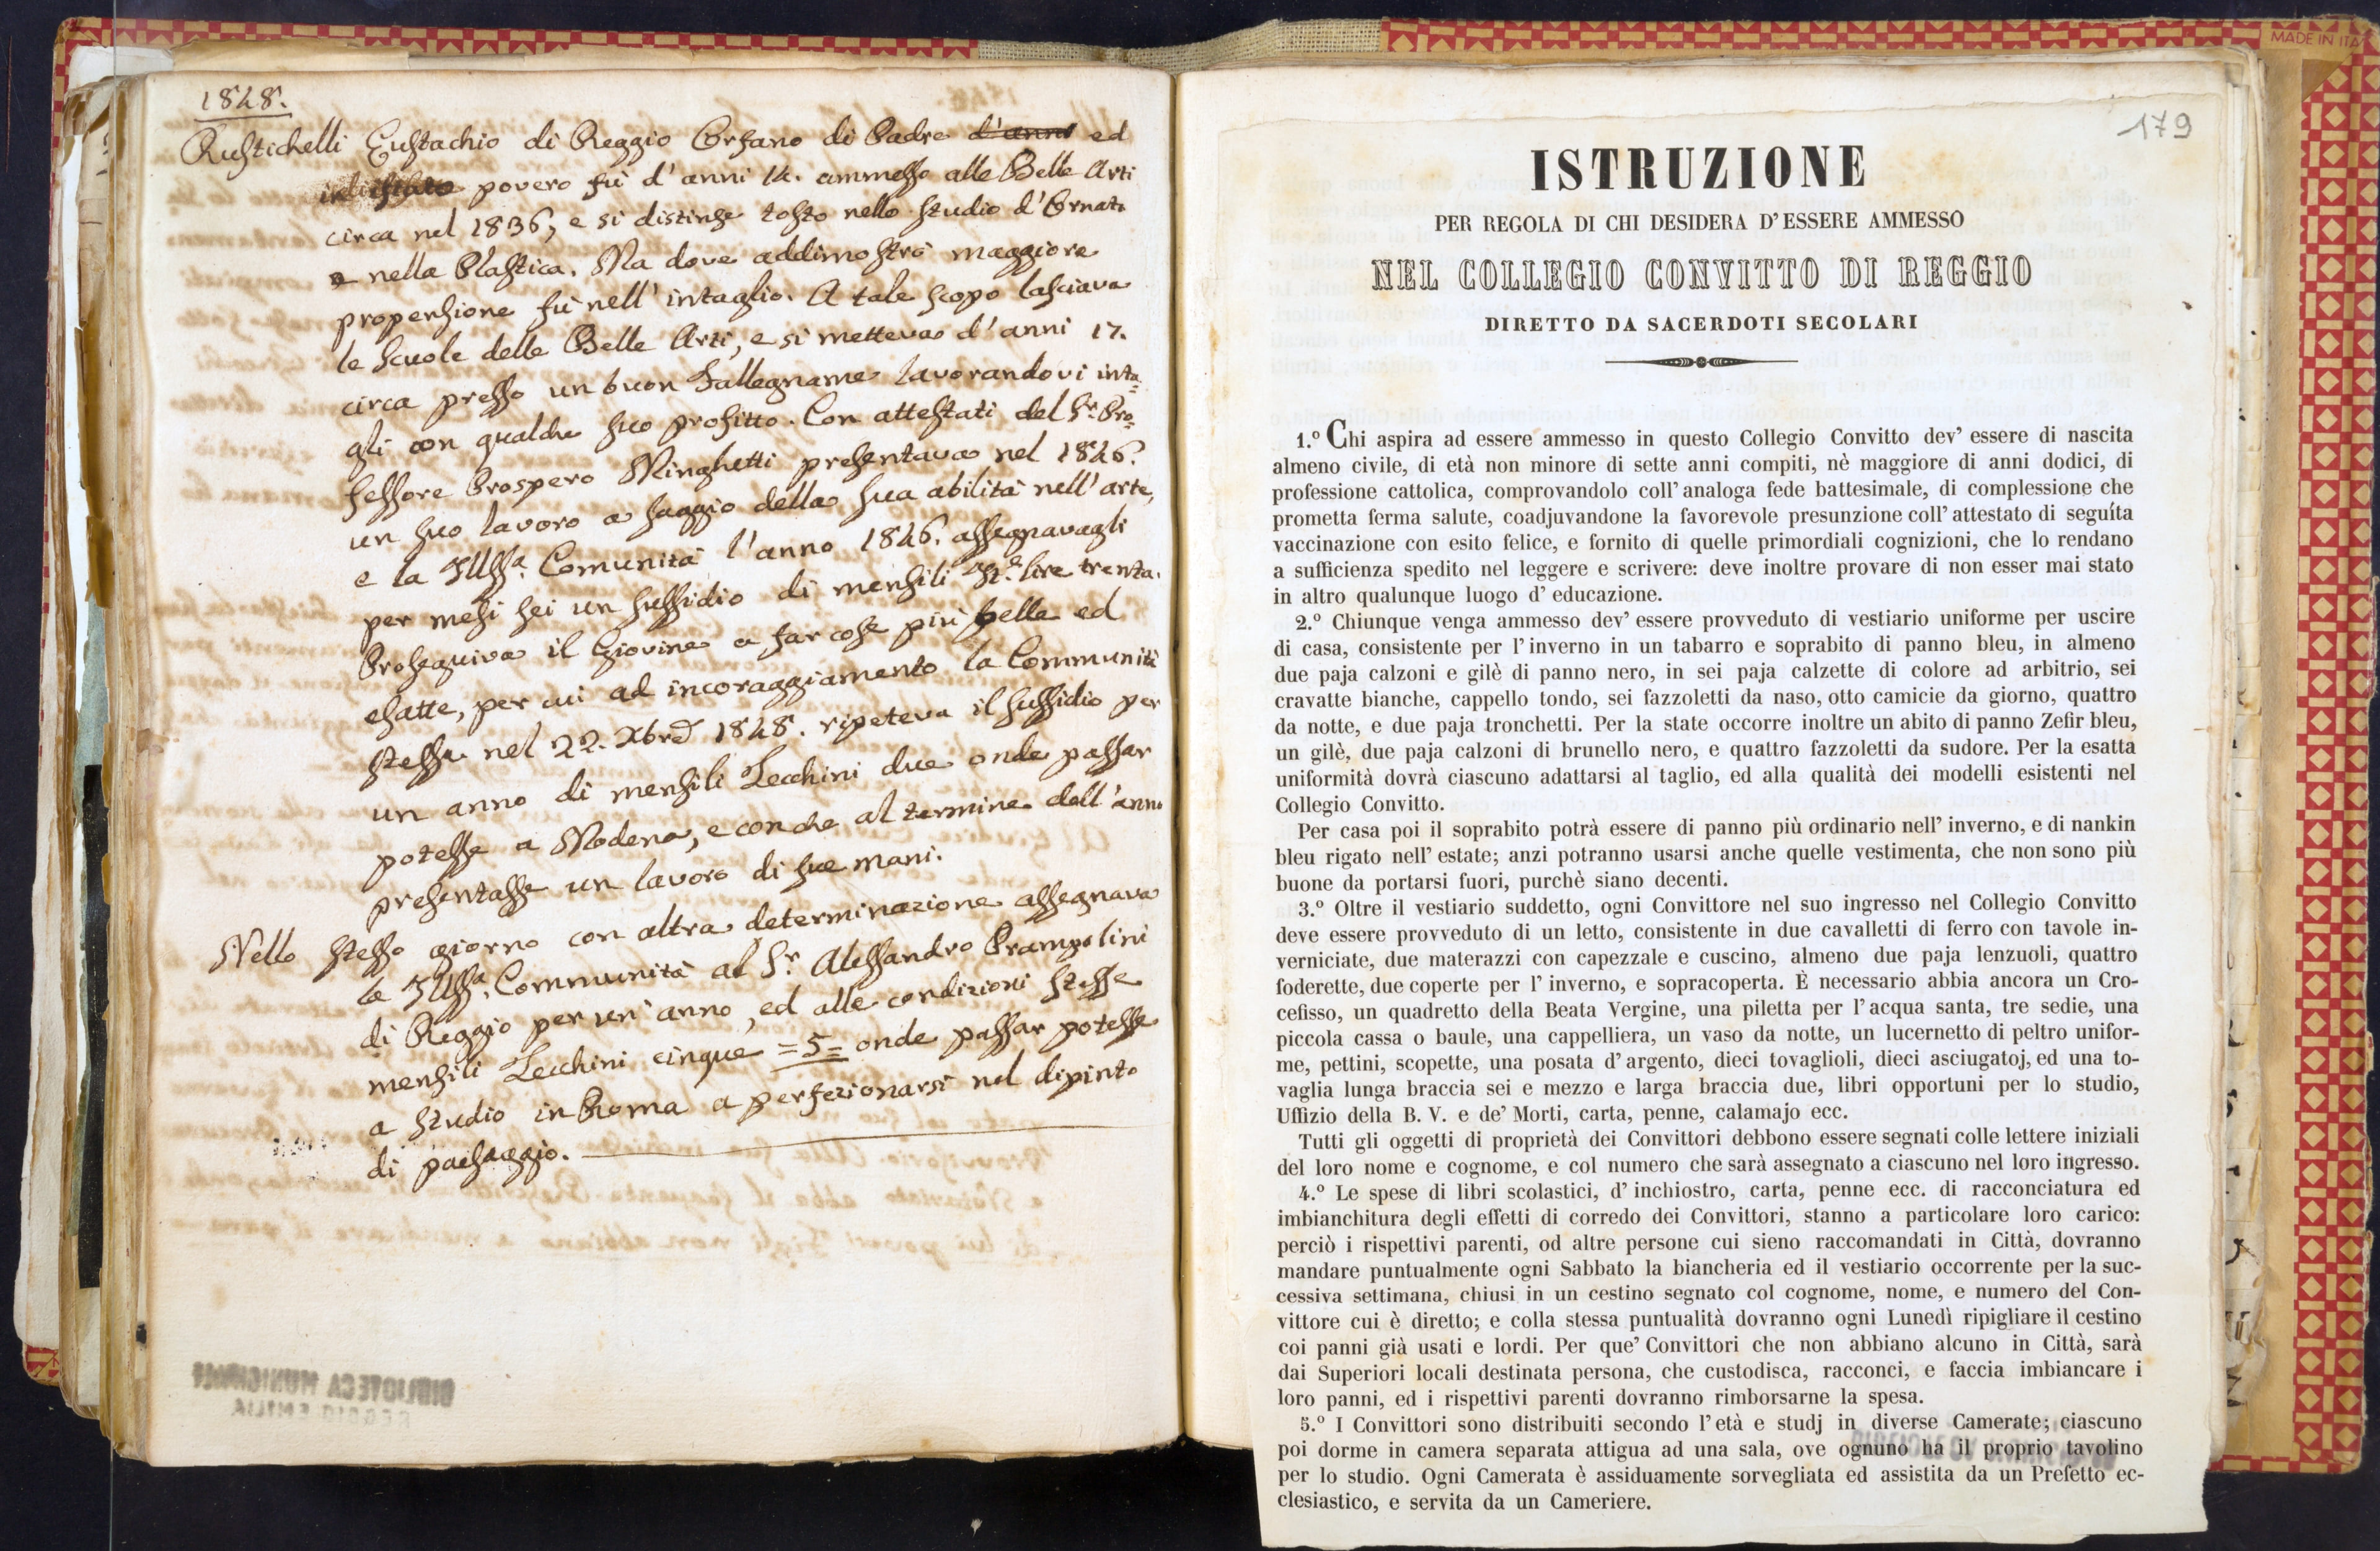 1848.
Rustichelli Eustachio di Reggio Orfano di Padre d'anni ed
povero fù d'anni 14. ammesso alle Belle Arti
circa nel 1836, e si distinse tosto nello studio d'Ornato
e nella Plastica. Ma dove addimostrò maggiore
propensione fù nell'intaglio. A tale scopo lasciava
le Scuole delle Belle Arti, e si metteva d'anni 17.
circa presso un buon Fallegname lavorandovi inta=
gli con qualche suo profitto. Con attestati del Sr. Pro=
fessore Prospero Minghetti presentava nel 1846.
un suo lavoro a saggio della sua abilità nell'arte,
e la Illssa. Comunità l'anno 1846. assegnavagli
per mesi sei un sussidio di mensili lire trenta.
Proseguiva il Giovine a far cose più belle ed
esatte, per cui ad incoraggiamento la Communità
stessa nel 22. Xbre 1848. ripeteva il sussidio per
un anno di mensili Zecchini due onde passar
potesse a Modena, e con che al termine dell'anno
presentasse un lavoro di sue mani.
Nello stesso giorno con altra determinazione assegnava
la Illssa. Communità al Sr. Alessandro Prampolini
di Reggio per un'anno, ed alle condizioni stesse
mensili Zecchini cinque =5= onde passar potesse
a studio in Roma a perfezionarsi nel dipinto
di paesaggio.
BIBLIOTECA MUNICIPALE
REGGIO EMILIA
MADE IN ITA
179
ISTRUZIONE
PER REGOLA DI CHI DESIDERA D'ESSERE AMMESSO
NEL COLLEGIO CONVITTO DI REGGIO
DIRETTO DA SACERDOTI SECOLARI
1.º Chi aspira ad essere ammesso in questo Collegio Convitto dev' essere di nascita
almeno civile, di età non minore di sette anni compiti, nè maggiore di anni dodici, di
professione cattolica, comprovandolo coll'analoga fede battesimale, di complessione che
prometta ferma salute, coadjuvandone la favorevole presunzione coll'attestato di seguíta
vaccinazione con esito felice, e fornito di quelle primordiali cognizioni, che lo rendano
a sufficienza spedito nel leggere e scrivere: deve inoltre provare di non esser mai stato
in altro qualunque luogo d' educazione.
2.º Chiunque venga ammesso dev' essere provveduto di vestiario uniforme per uscire
di casa, consistente per l'inverno in un tabarro e soprabito di panno bleu, in almeno
due paja calzoni e gilè di panno nero, in sei paja calzette di colore ad arbitrio, sei
cravatte bianche, cappello tondo, sei fazzoletti da naso, otto camicie da giorno, quattro
da notte, e due paja tronchetti. Per la state occorre inoltre un abito di panno Zefir bleu,
un gilè, due paja calzoni di brunello nero, e quattro fazzoletti da sudore. Per la esatta
uniformità dovrà ciascuno adattarsi al taglio, ed alla qualità dei modelli esistenti nel
Collegio Convitto.
Per casa poi il soprabito potrà essere di panno più ordinario nell' inverno, e di nankin
bleu rigato nell' estate; anzi potranno usarsi anche quelle vestimenta, che non sono più
buone da portarsi fuori, purchè siano decenti.
3.º Oltre il vestiario suddetto, ogni Convittore nel suo ingresso nel Collegio Convitto
deve essere provveduto di un letto, consistente in due cavalletti di ferro con tavole in-
verniciate, due materazzi con capezzale e cuscino, almeno due paja lenzuoli, quattro
foderette, due coperte per l' inverno, e sopracoperta. È necessario abbia ancora un Cro-
cefisso, un quadretto della Beata Vergine, una piletta per l'acqua santa, tre sedie, una
piccola cassa o baule, una cappelliera, un vaso da notte, un lucernetto di peltro unifor-
me, pettini, scopette, una posata d'argento, dieci tovaglioli, dieci asciugatoj, ed una to-
vaglia lunga braccia sei e mezzo e larga braccia due, libri opportuni per lo studio,
Uffizio della B. V. e de' Morti, carta, penne, calamajo ecc.
Tutti gli oggetti di proprietà dei Convittori debbono essere segnati colle lettere iniziali
del loro nome e cognome, e col numero che sarà assegnato a ciascuno nel loro ingresso.
4.º Le spese di libri scolastici, d' inchiostro, carta, penne ecc. di racconciatura ed
imbianchitura degli effetti di corredo dei Convittori, stanno a particolare loro carico:
perciò i rispettivi parenti, od altre persone cui sieno raccomandati in Città, dovranno
mandare puntualmente ogni Sabbato la biancheria ed il vestiario occorrente per la suc-
cessiva settimana, chiusi in un cestino segnato col cognome, nome, e numero del Con-
vittore cui è diretto; e colla stessa puntualità dovranno ogni Lunedì ripigliare il cestino
coi panni già usati e lordi. Per que' Convittori che non abbiano alcuno in Città, sarà
dai Superiori locali destinata persona, che custodisca, racconci, e faccia imbiancare i
loro panni, ed i rispettivi parenti dovranno rimborsarne la spesa.
5.º I Convittori sono distribuiti secondo l'età e studj in diverse Camerate; ciascuno
poi dorme in camera separata attigua ad una sala, ove ognuno ha il proprio tavolino
per lo studio. Ogni Camerata è assiduamente sorvegliata ed assistita da un Prefetto ec-
clesiastico, e servita da un Cameriere.